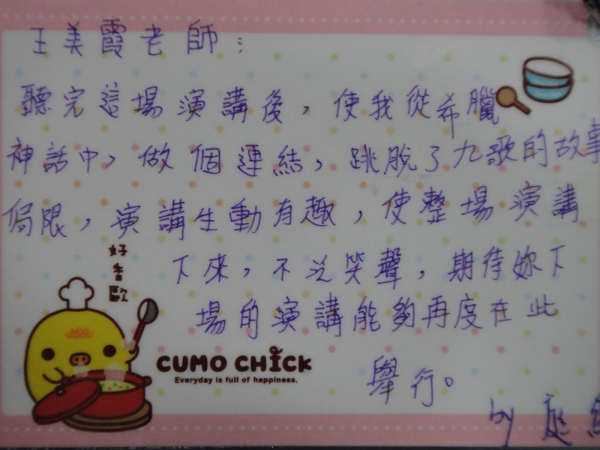 王美霞老師：
聽完這場演講後，使我從希臘
神話中，做個連結，跳脫了九歌的故事
侷限，演講生動有趣，使整場演講
下來，不乏笑聲，期待妳下
場的演講能夠再度在此
舉行。
by 庭
好香歐
CUMO CHICK
Everyday is full of happiness.